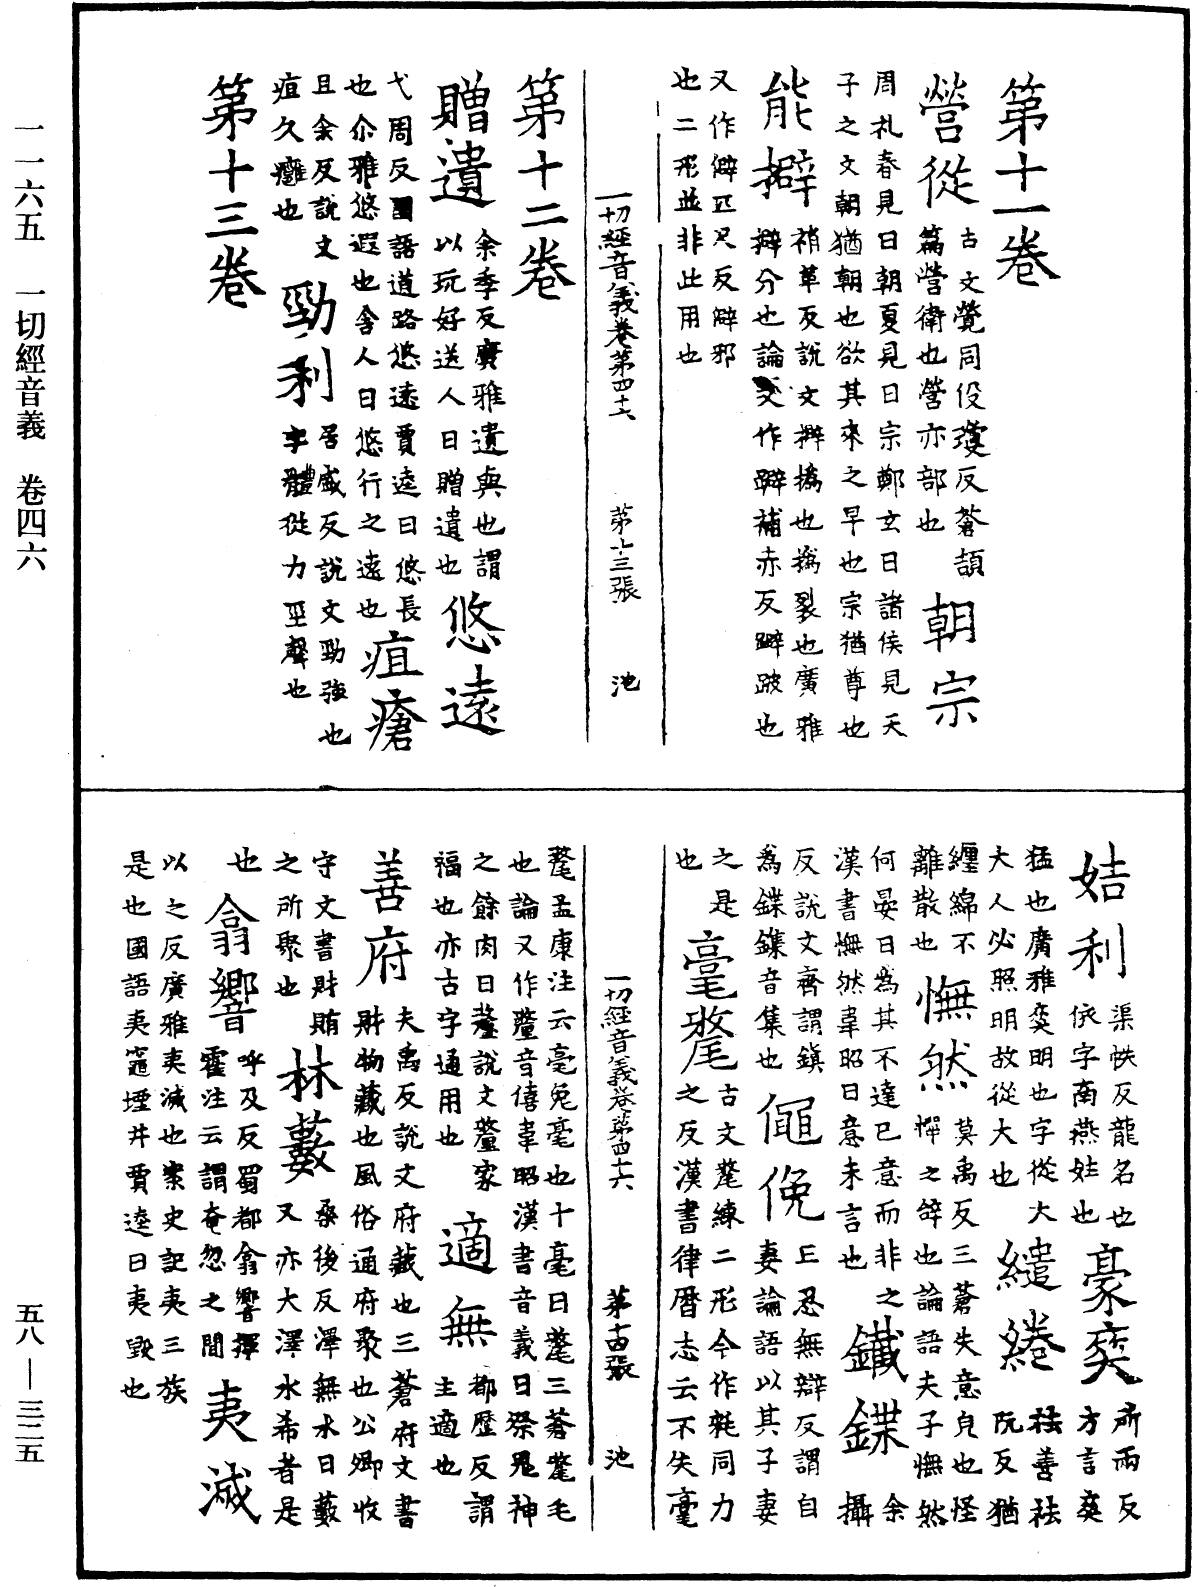 一一六五　一切經音義　卷四六
五八—三二五
第十一卷
營從
古文覺同役瓊反蒼頡
篇營衛也營亦部也
朝宗
周礼春見曰朝夏見曰宗鄭玄曰諸侯見天
子之文朝猶朝也欲其來之早也宗猶尊也
能擗
補革反說文擗撝也撝裂也廣雅
擗分也論文作躃補赤反躃跛也
又作僻匹尺反僻邪
也二形並非此用也
一切經音義卷第四十六　第十三張　池
第十二卷
贈遺
余季反廣雅遺與也謂
以玩好送人曰贈遺也
悠遠
弋周反國語道路悠遠賈逵曰悠長
也尒雅悠遐也舍人曰悠行之遠也
疽瘡
且余反說文
疽久癰也
勁利
居盛反說文勁強也
字體從力巠聲也
第十三卷
姞利
渠帙反龍名也
依字南燕姓也
豪奕
所兩反
方言奕
猛也廣雅奕明也字從大
大人必照明故從大也
繾綣
袪善袪
阮反猶
纏綿不
離散也
憮然
莫禹反三蒼失意皃也怪
憚之辝也論語夫子憮然
何晏曰為其不達已意而非之
漢書憮然韋昭曰意未言也
鐵鍱
余
攝
反說文齊謂鎮
為鍱鏶音集也
僶俛
亡忍無辯反謂自
妻論語以其子妻
之是
也
毫氂
古文氂練二形今作耗同力
之反漢書律曆志云不失毫
氂孟康注云毫兔毫也十毫曰氂三蒼氂毛
也論又作釐音僖韋昭漢書音義曰祭鬼神
之餘肉曰釐說文釐家
福也亦古字通用也
適無
都歷反謂
主適也
善府
夫禹反說文府藏也三蒼府文書
財物藏也風俗通府聚也公卿收
守文書財賄
之所聚也
林藪
桑後反澤無水曰藪
又亦大澤水希者是
也
翕響
呼及反蜀都翕響揮
霍注云謂奄忽之間
夷滅
以之反廣雅夷滅也案史記夷三族
是也國語夷竈堙井賈逵曰夷毀也
一切經音義卷第四十六　第十四張　池